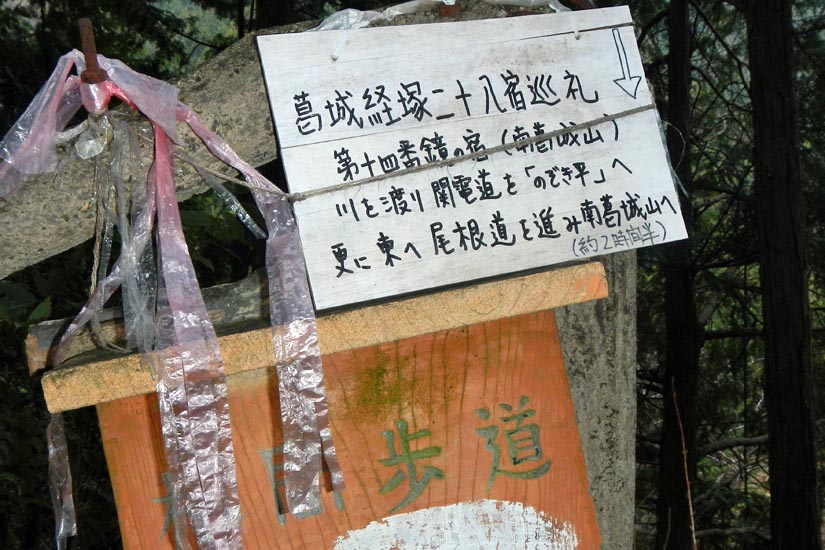 葛城経塚二十八宿巡礼
第十四番鏡の宿(南葛城山)
川を渡り関電道を「のぞき平」へ
更に東へ尾根道を進み南葛城山へ
(約2時間半)
歩道